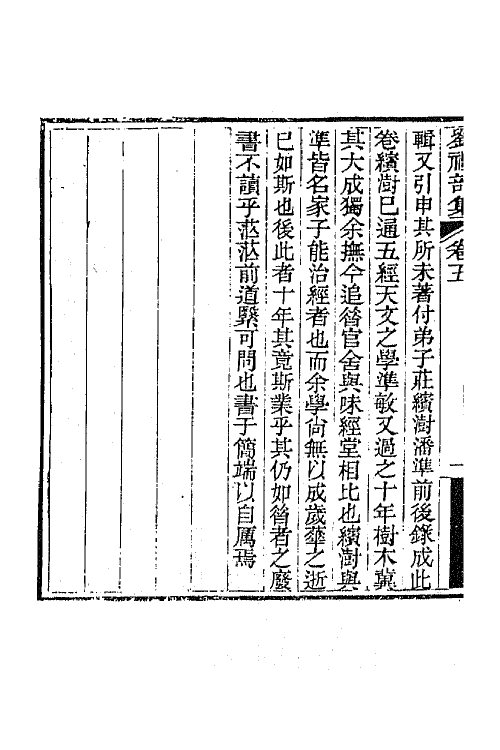 劉禮部集 卷五 一
輯又引申其所未著付弟子莊繽澍潘準前後錄成此
卷繽澍已遍五經天文之學準敏又過之十年樹木冀
其大成獨余撫今追昝官舍與味經堂相比也繽澍與
準皆名家子能治經者也而余學尙無以成歲蕐之逝
已如斯也後此者十年其竟斯業乎其仍如昝者之廢
書不讀乎茫茫前道繄可問也書于簡端以自厲焉